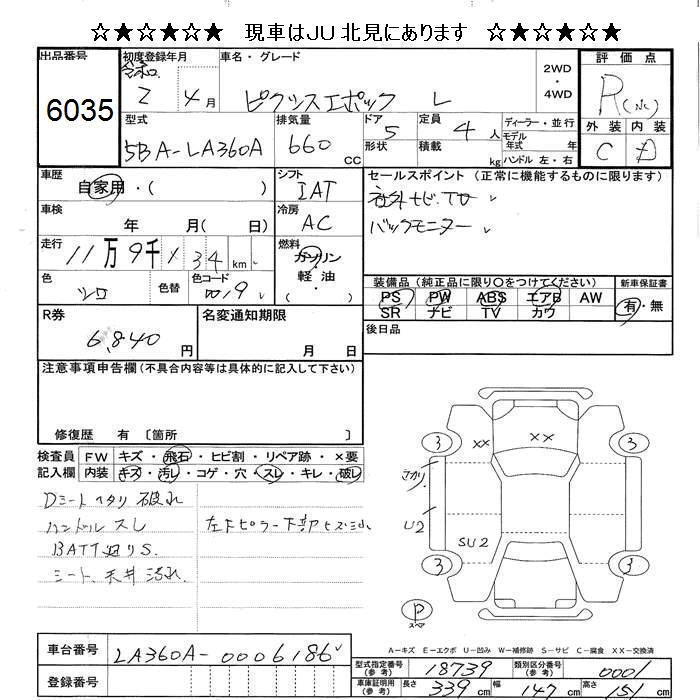 ☆★☆★☆★ 現車はJU北見にあります ☆★☆★☆★
出品番号
6035
初度登録年月
2 年 4 月
車名・グレード
ピクシスエポック L
2WD
・
4WD
評価点
R
外装 内装
C D
型式
5BA-LA360A
排気量
660 cc
ドア
5
形状
定員
4 人
積載 kg
ディーラー・並行
モデル
年式 年
ハンドル 左・右
車歴
自家用・( )
シフト
IAT
セールスポイント (正常に機能するものに限ります)
社外ナビ.TV
バックモニター
車検
年 月( 日)
冷房
AC
走行
11万9千 134 km
燃料
ガソリン
・
軽・油
・
色
シロ
色替
色コード
W19
装備品 (純正品に限り○をつけてください)
PS PW ABS エアB AW
SR ナビ TV カワ
新車保証書
有・無
R券
6,840 円
名変通知期限
月 日
後日品
注意事項申告欄 (不具合内容等は具体的に記入して下さい)
修復歴 有 〔箇所 〕
検査員
記入欄
FW キズ・飛石・ヒビ割・リペア跡・×要
内装 キズ・汚レ・コゲ・穴・スレ・キレ・破レ
Dシートヘタリ 破れ
ハンドル スレ
BATT
シート、天井 汚れ
左下ピラー下部
××
××
3
3
U2
SU2
3
3
P
スペア
A-キズ E-エクボ U-凹み W-補修跡 S-サビ C-腐食 XX-交換済
車台番号
LA360A-0006186
登録番号
型式指定番号
(参考)
18739
類別区分番号
(参考)
0001
車庫証明用
(参考)
長さ 339 cm 幅 147 cm 高さ 151 cm